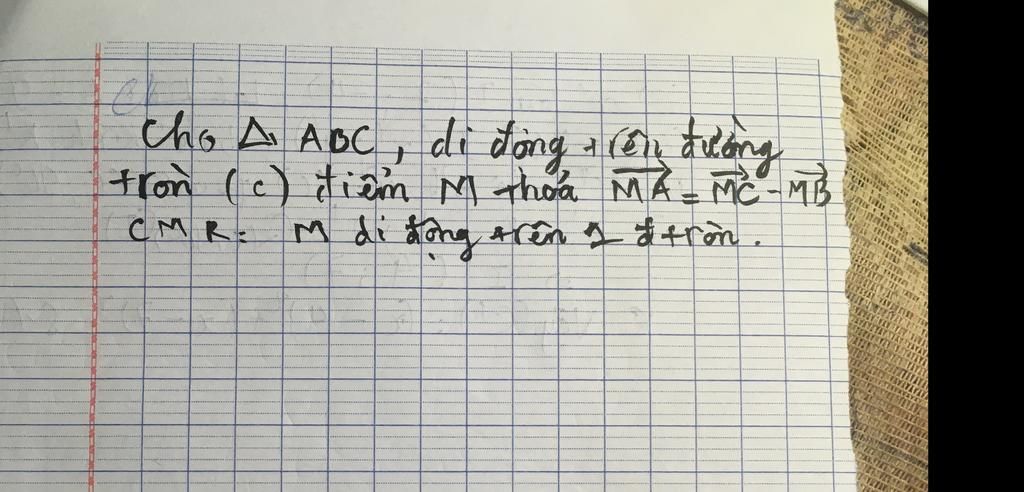 Cho Δ ABC, di động trên đường
tròn (C) điểm M thoả \overrightarrow{MA} = \overrightarrow{MC} - \overrightarrow{MB}
CMR: M di động trên 1 đ tròn.